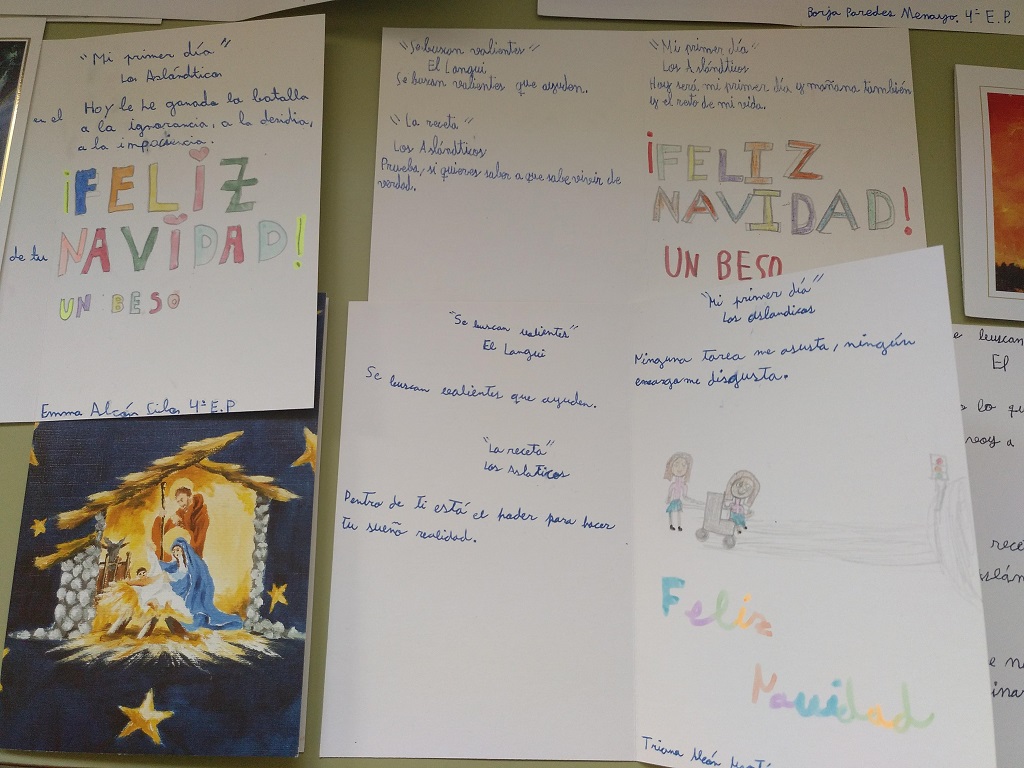 Borja Paredes Menayo. 4º E.P.
"Mi primer día"
Los Aslándticos
Hoy le he ganado la batalla
a la ignorancia, a la desidia,
a la impaciencia.
en el
¡FELIZ
NAVIDAD!
de tu
UN BESO
Emma Alcón Cilos 4º E.P
"Se buscan valientes"
El Langui
Se buscan valientes que ayuden.
"La receta"
Los Aslándticos
Prueba, si quieres saber a que sabe vivir de
verdad.
"Mi primer día"
Los Aslándticos
Hoy será, mi primer día y mañana también
y el resto de mi vida.
¡FELIZ
NAVIDAD!
UN BESO
"Se buscan valientes"
El Langui
Se buscan valientes que ayuden.
"La receta"
Los Aslaticos
Dentro de ti está el poder para hacer
tu sueño realidad.
"Mi primer día"
Los aslandicos
Ninguna tarea me asusta, ningún
encargo me disgusta.
Feliz
Navidad
Triana
e buscan
El
lo qu
voy a
rece
slán
e n
ina